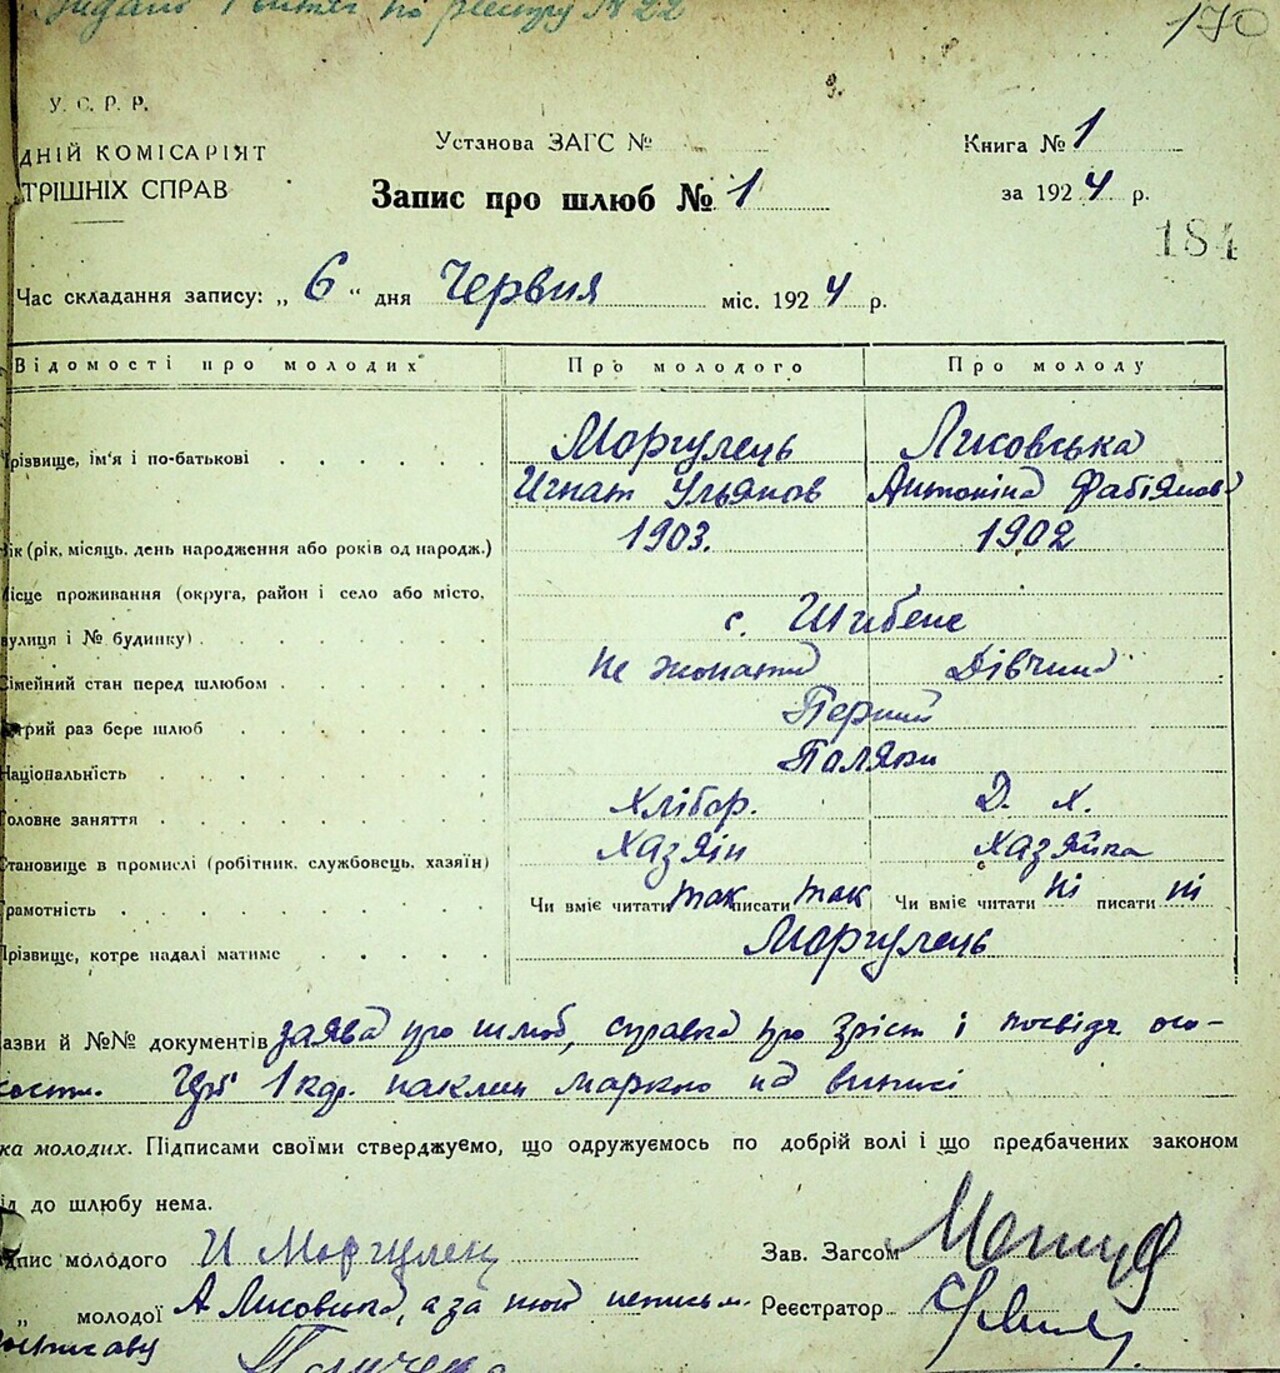 Видано 1 витяг по реєстру N 22
170
У. С. Р. Р.
ДНІЙ КОМІСАРІЯТ
ТРІШНІХ СПРАВ
Установа ЗАГС №
Книга № 1
Запис про шлюб № 1
за 1924 р.
184
Час складання запису: „ 6 “ дня Червня міс. 1924 р.
Відомості про молодих Про молодого Про молоду
Прізвище, ім'я і по-батькові Моргулець Лисовська
Игнат Ульянов Антоніна Фабіянов
Вік (рік, місяць, день народження або років од народж.) 1903. 1902
Місце проживання (округа, район і село або місто,
вулиця і № будинку) с. Шибене
Сімейний стан перед шлюбом не жонатий Дівчина
Котрий раз бере шлюб Перший
Національність Поляки
Головне заняття Хлібор. Д. Х.
Становище в промислі (робітник, службовець, хазяїн) Хазяін Хазяйка
Грамотність Чи вміє читати так писати так Чи вміє читати ні писати ні
Прізвище, котре надалі матиме Моргулець
азви й №№ документів заява про шлюб, справка про зріст і посвідч осо-
1 кр. наклеп маркою на виписі
ка молодих. Підписами своїми стверджуємо, що одружуємось по добрій волі і що предбачених законом
ід до шлюбу нема.
дпис молодого И Моргулец Зав. Загсом
„ молодої А Лисовська, а за Реєстратор